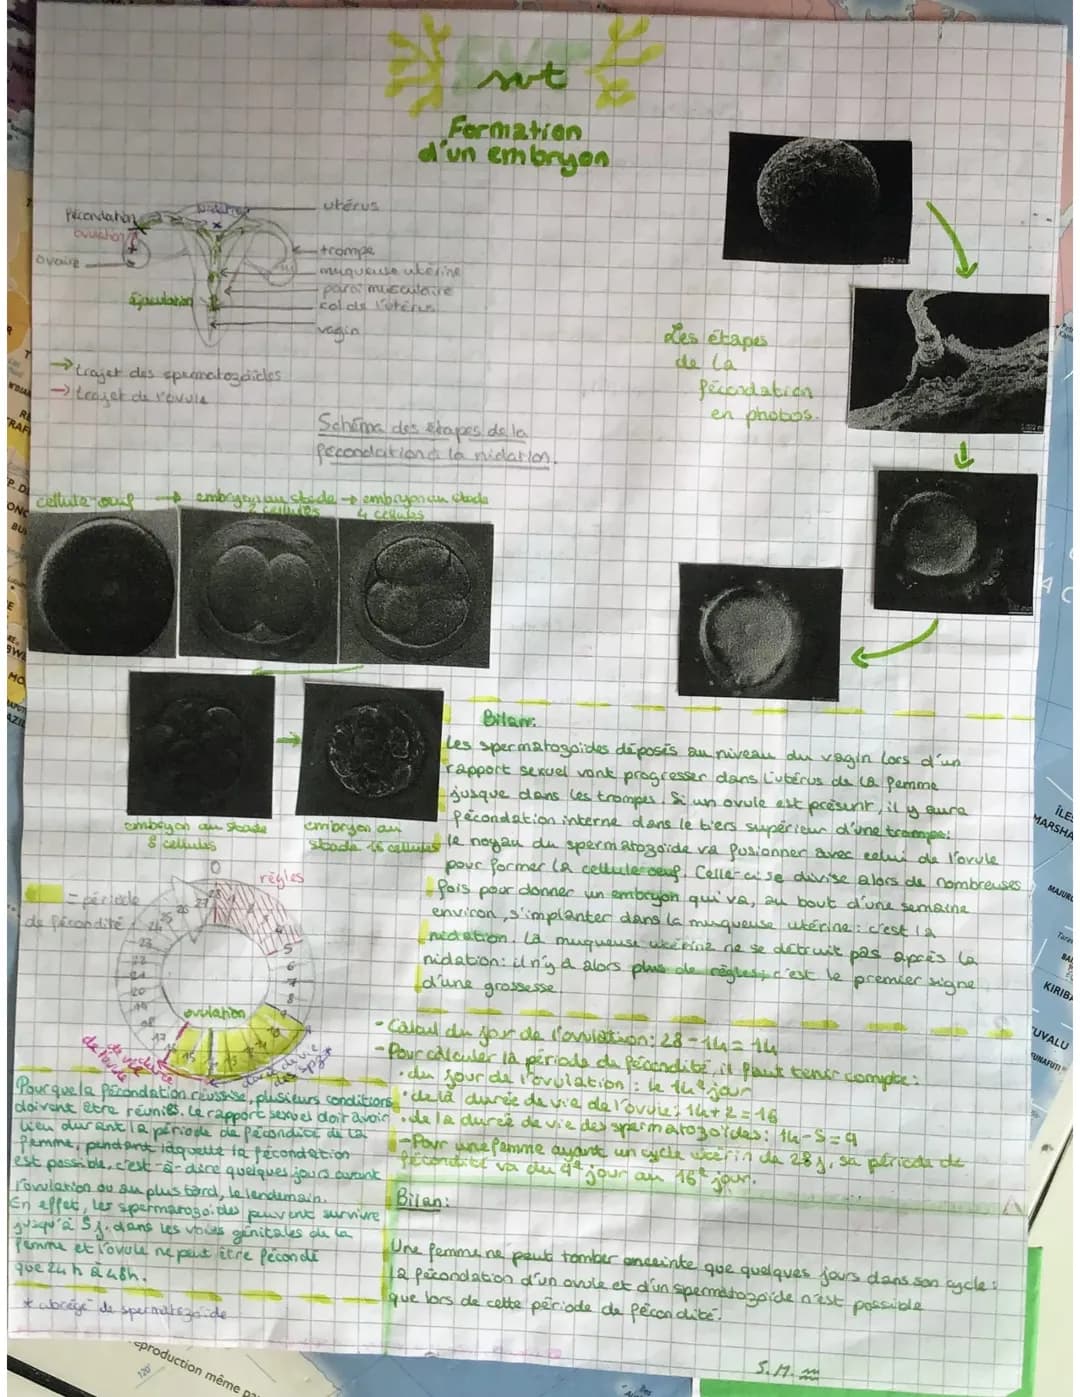 svt
Formation
d'un embryon
utérus
fécondation
nidation
ovulation
ovaire
trompe
muqueuse utérine
paroi musculaire
éjaculation
col de l'utérus
vagin
→ trajet des spermatozoïdes
→ trajet de l'ovule
Schéma des étapes de la
fécondation à la nidation.
Les étapes
de la
fécondation
en photos.
cellule-œuf → embryon au stade → embryon au stade
2 cellules
4 cellules
embryon au stade
8 cellules
embryon au
stade 16 cellules
Bilan:
Les spermatozoïdes déposés au niveau du vagin lors d'un
rapport sexuel vont progresser dans l'utérus de la femme
jusque dans les trompes. Si un ovule est présent, il y aura
fécondation interne dans le tiers supérieur d'une trompe:
le noyau du spermatozoïde va fusionner avec celui de l'ovule
pour former la cellule œuf. Celle-ci se divise alors de nombreuses
fois pour donner un embryon qui va, au bout d'une semaine
environ, s'implanter dans la muqueuse utérine: c'est la
nidation. La muqueuse utérine ne se détruit pas après la
nidation: il n'y a alors plus de règles; c'est le premier signe
d'une grossesse
= période
de fécondité
règles
0
28
27
26
25
24
23
22
21
20
19
18
17
16
15
14
13
12
11
10
9
8
7
6
5
4
ovulation
durée
de vie
de l'ovule
durée de vie
des spz*
- Calcul du jour de l'ovulation: 28-14= 14
- Pour calculer la période de fécondité, il faut tenir compte:
• du jour de l'ovulation: le 14e jour
• de la durée de vie de l'ovule; 14+2=16
• de la durée de vie des spermatozoïdes: 14-5=9
- Pour une femme ayant un cycle utérin de 28j, sa période de
fécondité va du 9e jour au 16e jour.
Pour que la fécondation réussisse, plusieurs conditions
doivent être réunies. Le rapport sexuel doit avoir
lieu durant la période de fécondité de la
femme, pendant laquelle la fécondation
est possible, c'est-à-dire quelques jours avant
l'ovulation ou au plus tard, le lendemain.
En effet, les spermatozoïdes peuvent survivre
jusqu'à 5j. dans les voies génitales de la
femme et l'ovule ne peut être fécondé
que 24h à 48h.
* abrégé de spermatozoïde
Bilan:
Une femme ne peut tomber enceinte que quelques jours dans son cycle:
la fécondation d'un ovule et d'un spermatozoïde n'est possible
que lors de cette période de fécondité.
S.M.
ÎLES
MARSHA
KIRIBA
TUVALU
FUNAFUTI
120°
eproduction même pa